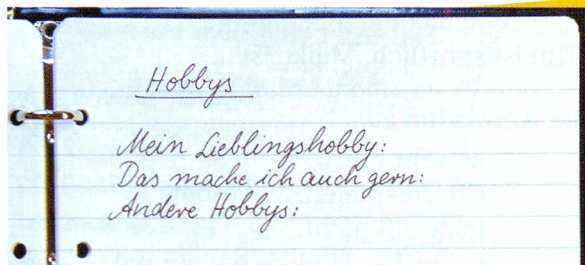 Hobbys
Mein Lieblingshobby:
Das mache ich auch gern:
Andere Hobbys: